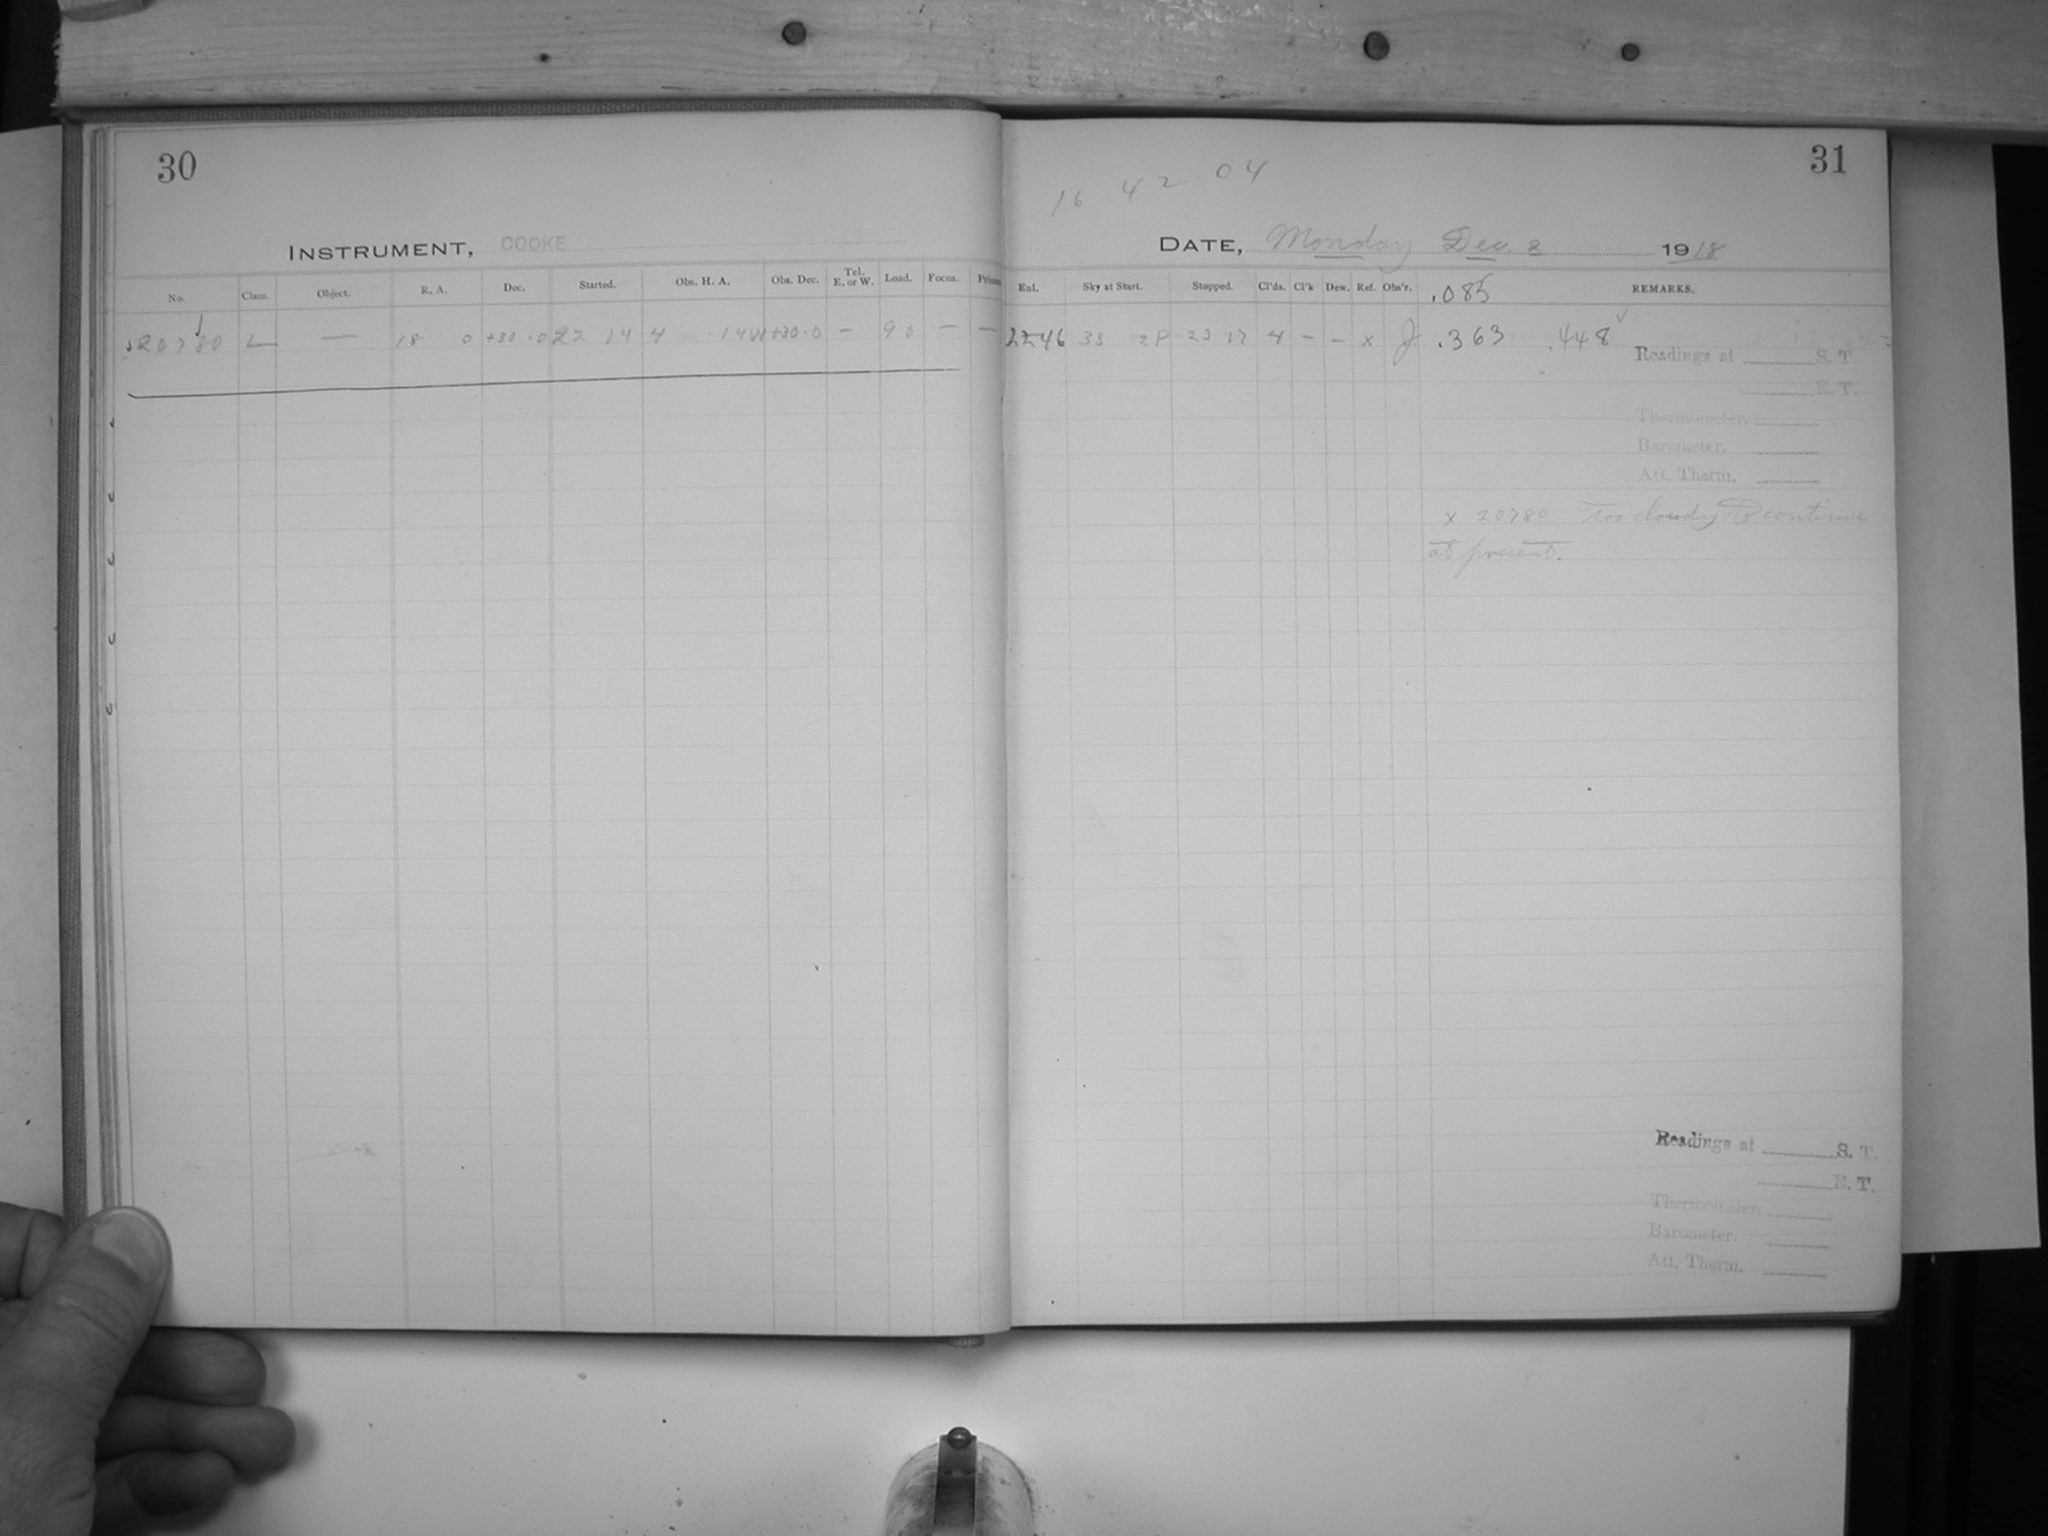 30
INSTRUMENT, COOKE
No. Class. Object. R. A. Dec. Started. Obs. H. A. Obs. Dec. Tel. E. or W. Load. Focus. Prism
20780 L — 18 0 +30.0 22 14 4 14W +30.0 — 90 — —
31
16 42 04
DATE, Monday Dec. 2 1918
Eul. Sky at Start. Stopped. Cl'ds. Cl'k Dew. Ref. Obs'r. .085 REMARKS.
2246 3S 2P 23 17 4 — — x J. .363 .448
Readings at S. T.
E. T.
Thermometer.
Barometer.
Att. Therm.
x 20780 Too cloudy to continue
at present.
Readings at S. T.
E. T.
Thermometer.
Barometer.
Att. Therm.